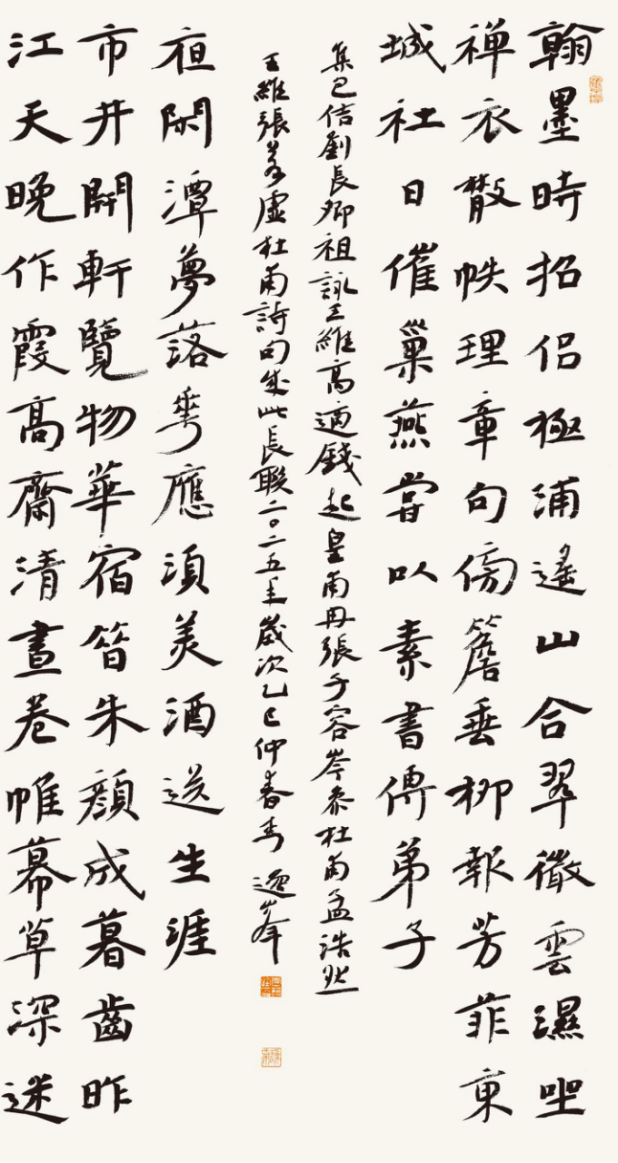 翰墨時招侶極浦遙山合翠微雲濕坐
禪衣散帙理章句傍簷垂柳報芳菲東
城社日催巢燕嘗以素書傳弟子
江天晚作霞高齋清晝卷帷幕草深迷
市井開軒覽物華宿昔朱顏成暮齒昨
夜閑潭夢落花應須美酒送生涯
集包佶劉長卿祖詠王維高適錢起皇甫冉張子容岑參杜甫孟浩然
王維張若虛杜甫詩句成此長聯二〇二五年歲次乙巳仲春 逸峯